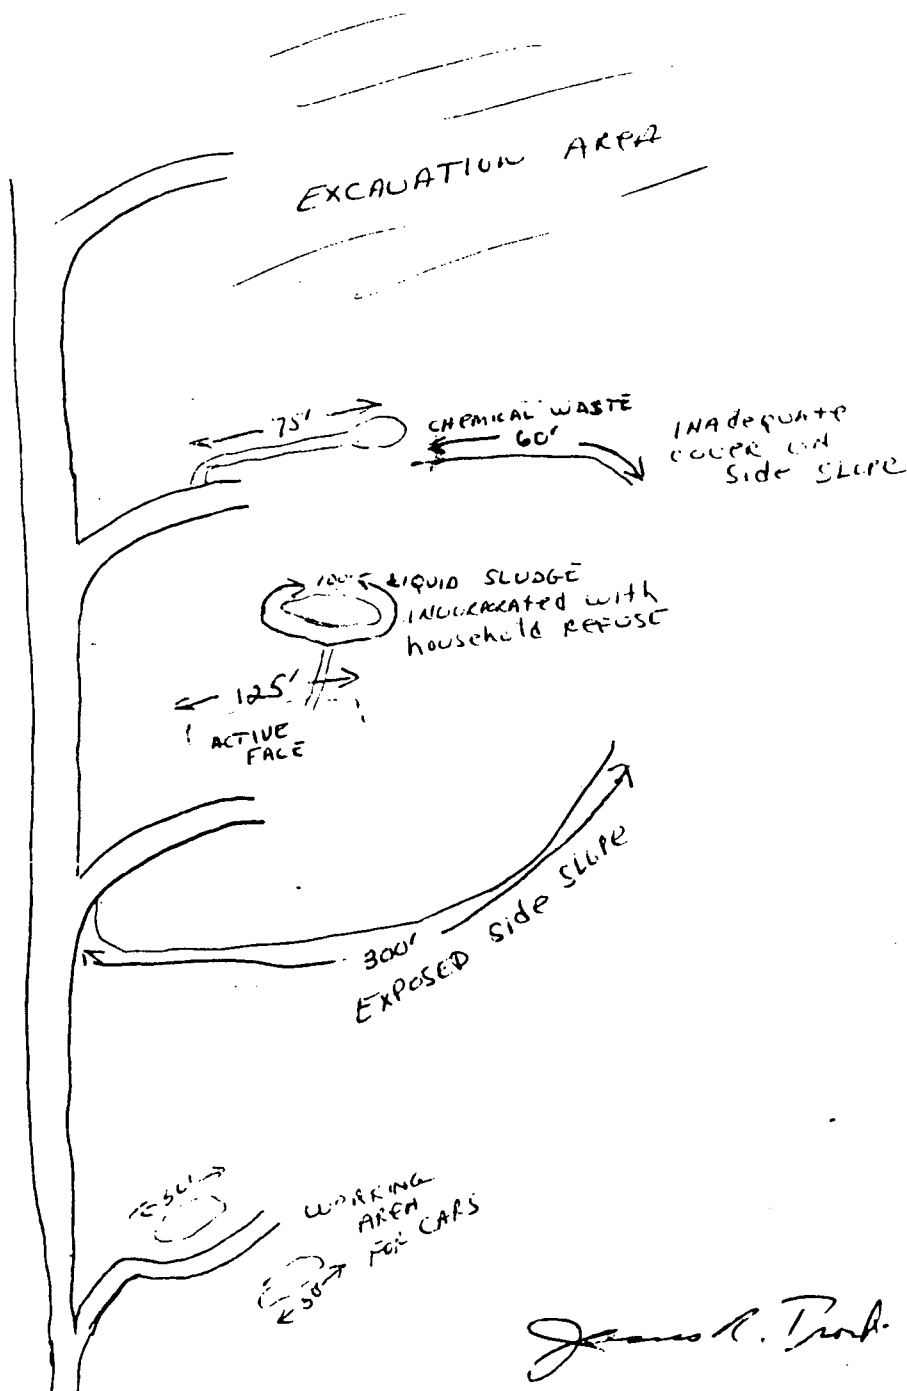 EXCAVATION AREA
75'
CHEMICAL WASTE
60'
INAdequate
COVER ON
Side SLOPE
100'
LIQUID SLUDGE
with
household REFUSE
125'
ACTIVE
FACE
300'
EXPOSED Side SLOPE
50'
WORKING
AREA
FOR CARS
50'
James R.